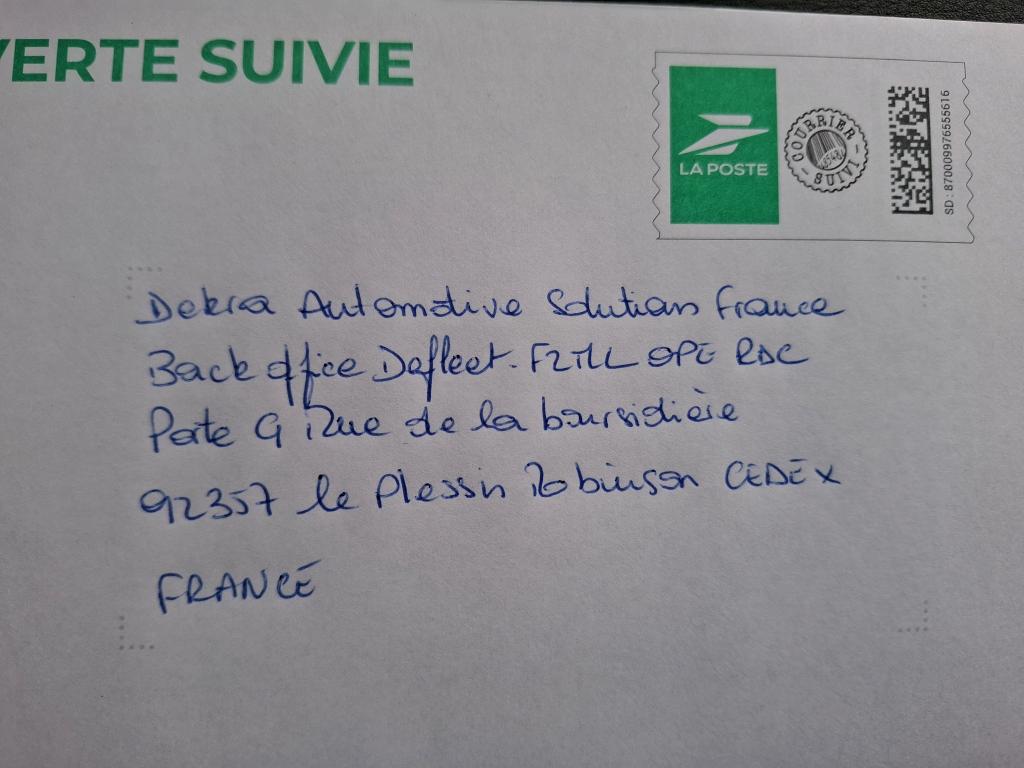 VERTE SUIVIE
LA POSTE
COURRIER SUIVI
SD : 870009976555616
Dekra Automotive Solutions France
Back office Defleet. OPE RDC
Porte G Rue de la boursidière
92357 le Plessis Robinson CEDEX
FRANCE